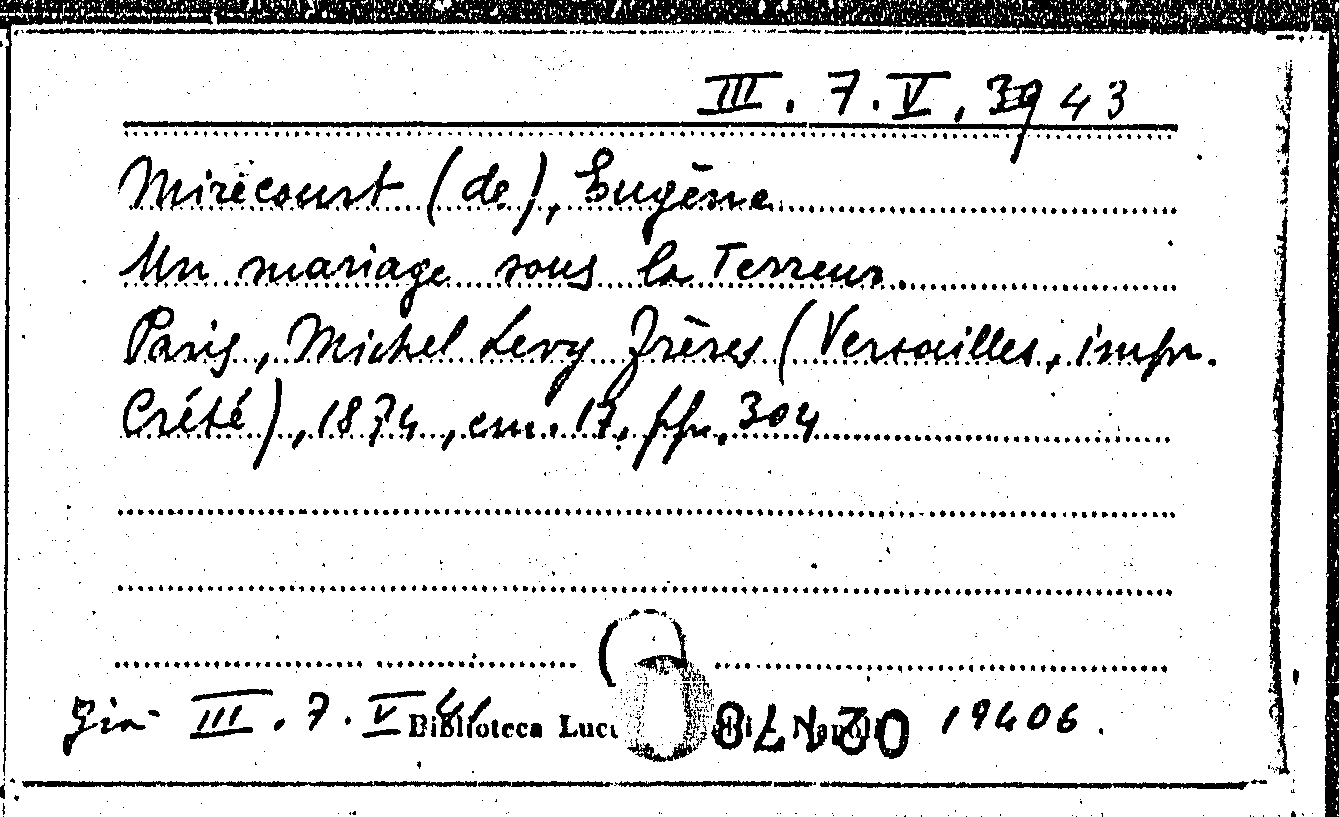 III. 7. V. 39 43
Mirecourt (de), Eugène
Un mariage sous la Terreur.
Paris, Michel Levy Frères (Versailles, impr.
Crété), 1874, cm. 17, pp. 304
Già III. 7. V 41 Biblioteca Lucc 19406.